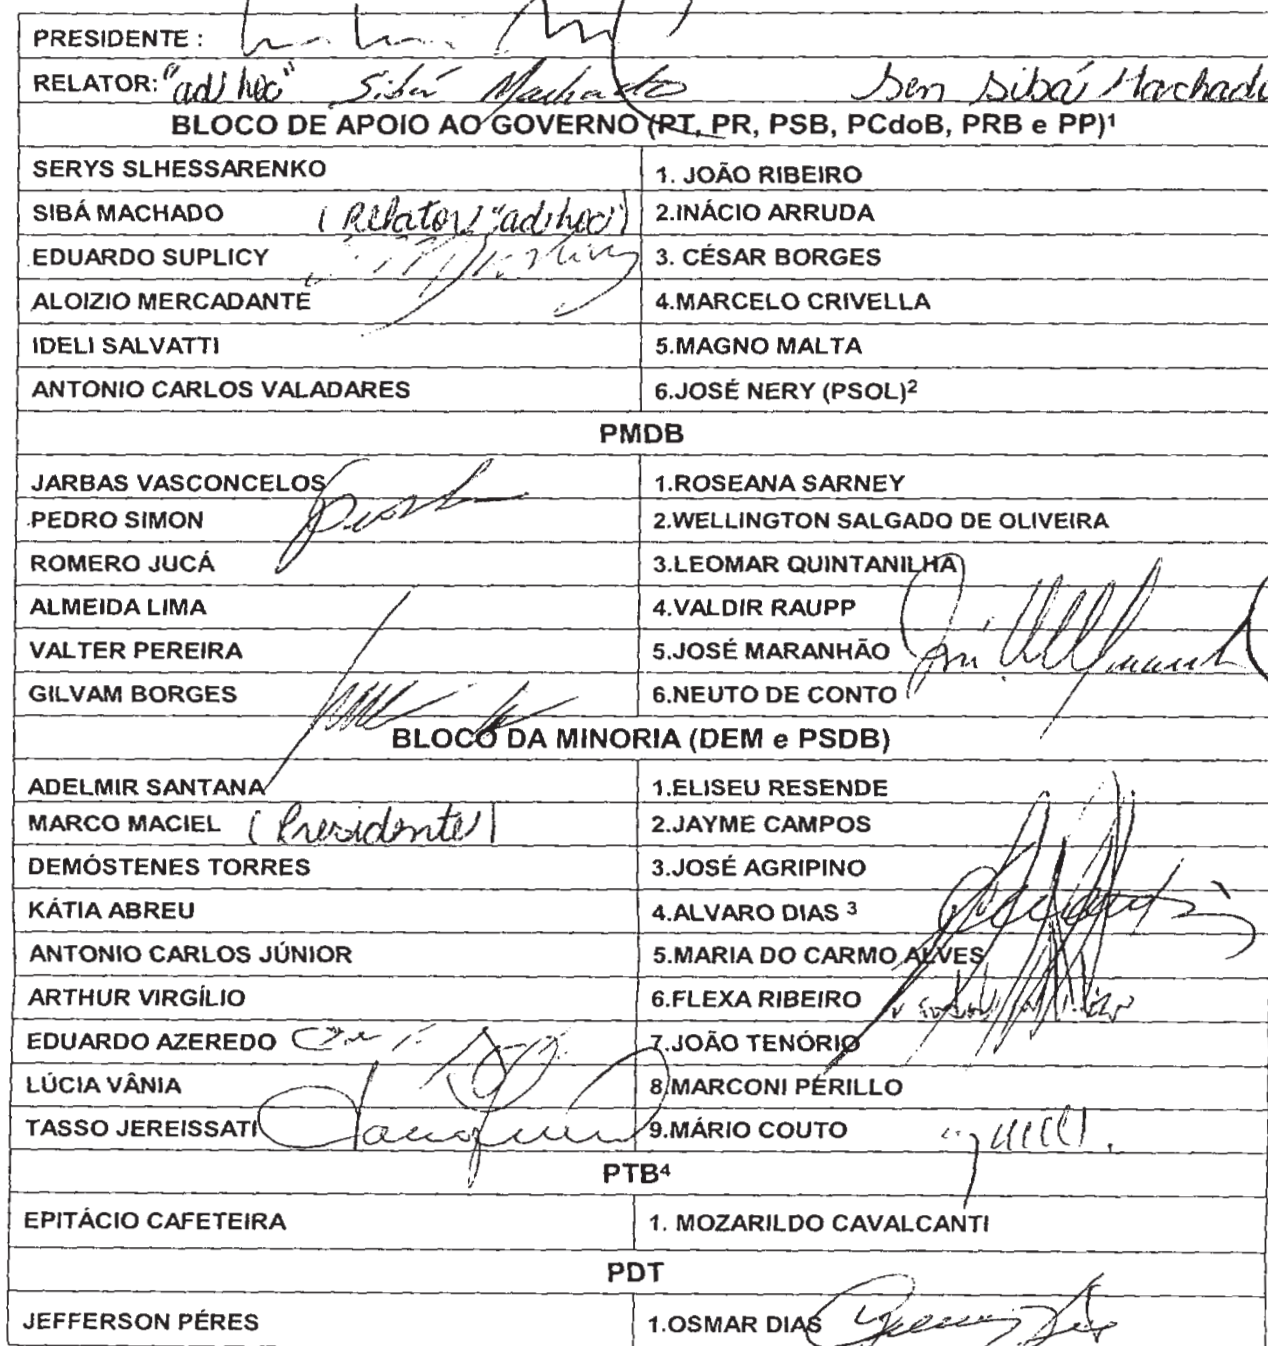 PRESIDENTE :
RELATOR: "ad hoc" Sibá Machado Sen Sibá Machado
BLOCO DE APOIO AO GOVERNO (PT, PR, PSB, PCdoB, PRB e PP)¹
SERYS SLHESSARENKO 1. JOÃO RIBEIRO
SIBÁ MACHADO (Relator "ad hoc") 2.INÁCIO ARRUDA
EDUARDO SUPLICY 3. CÉSAR BORGES
ALOIZIO MERCADANTE 4.MARCELO CRIVELLA
IDELI SALVATTI 5.MAGNO MALTA
ANTONIO CARLOS VALADARES 6.JOSÉ NERY (PSOL)²
PMDB
JARBAS VASCONCELOS 1.ROSEANA SARNEY
PEDRO SIMON 2.WELLINGTON SALGADO DE OLIVEIRA
ROMERO JUCÁ 3.LEOMAR QUINTANILHA
ALMEIDA LIMA 4.VALDIR RAUPP
VALTER PEREIRA 5.JOSÉ MARANHÃO
GILVAM BORGES 6.NEUTO DE CONTO
BLOCO DA MINORIA (DEM e PSDB)
ADELMIR SANTANA 1.ELISEU RESENDE
MARCO MACIEL (Presidente) 2.JAYME CAMPOS
DEMÓSTENES TORRES 3.JOSÉ AGRIPINO
KÁTIA ABREU 4.ALVARO DIAS ³
ANTONIO CARLOS JÚNIOR 5.MARIA DO CARMO ALVES
ARTHUR VIRGÍLIO 6.FLEXA RIBEIRO
EDUARDO AZEREDO 7.JOÃO TENÓRIO
LÚCIA VÂNIA 8.MARCONI PERILLO
TASSO JEREISSATI 9.MÁRIO COUTO
PTB⁴
EPITÁCIO CAFETEIRA 1. MOZARILDO CAVALCANTI
PDT
JEFFERSON PÉRES 1.OSMAR DIAS